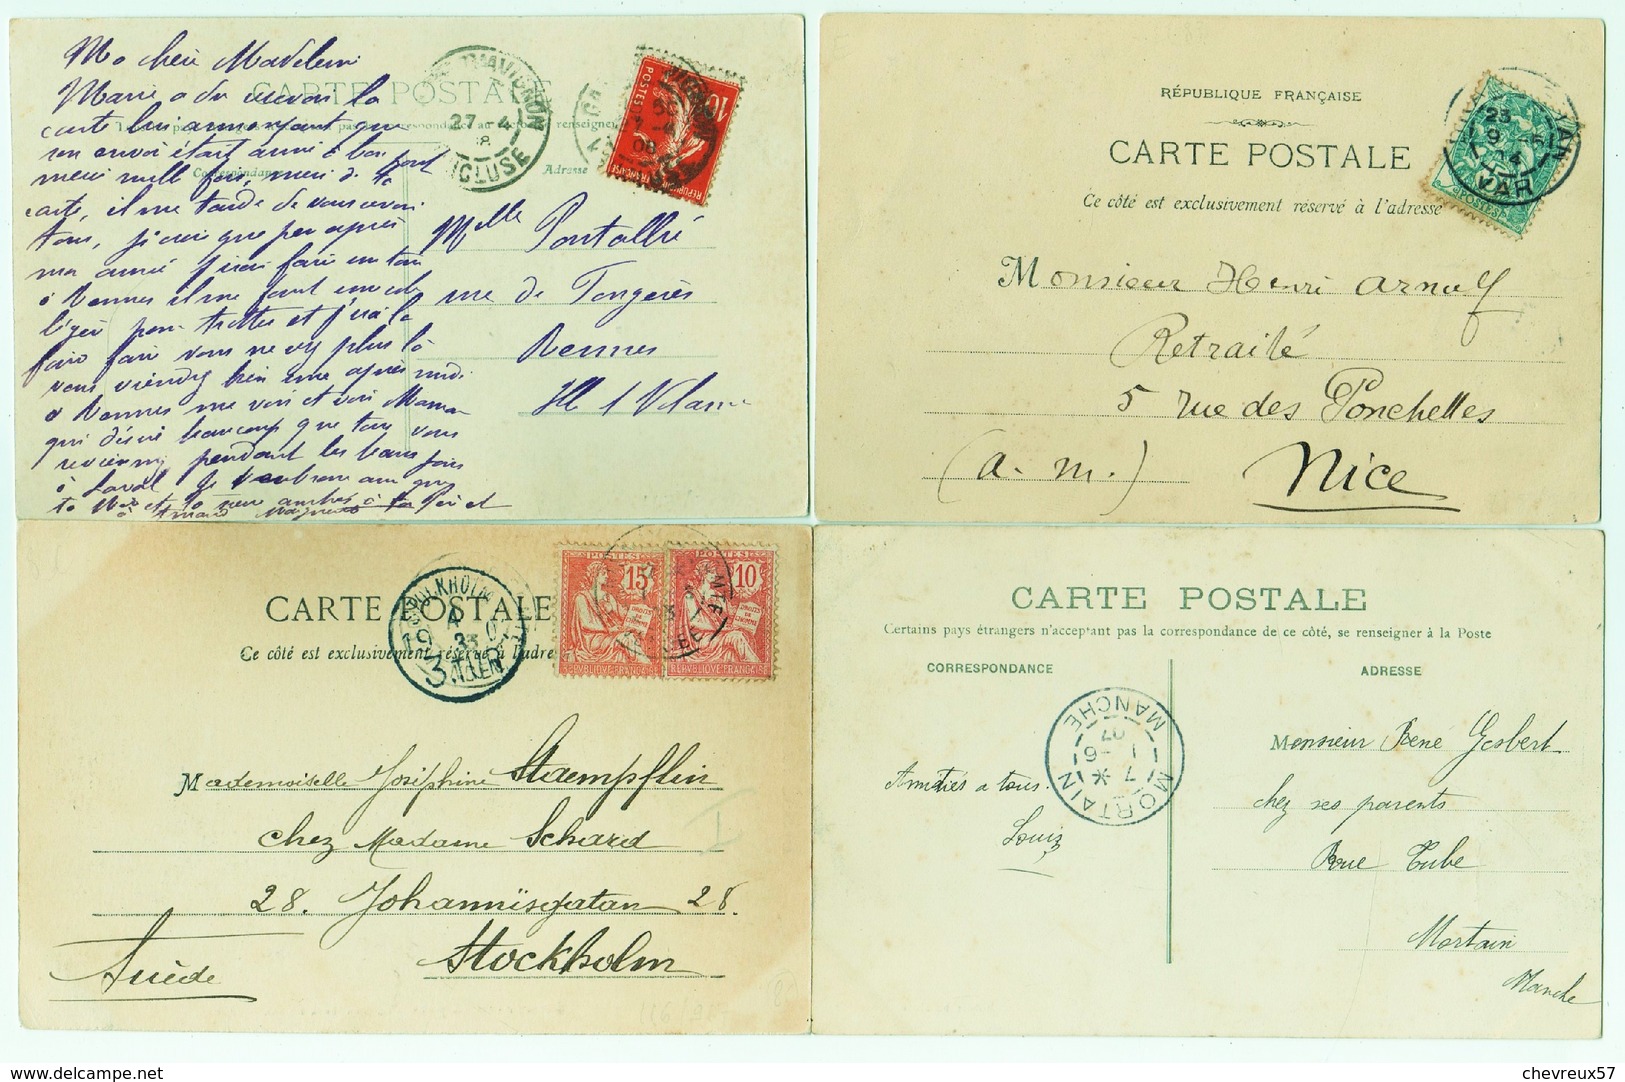 Ma chère Madeleine
CARTE POSTALE
Marie a du recevoir la
carte lui annonçant que
son envoi était arrivé à bon port
merci mille fois, merci de ta
carte, il me tarde de vous revoir
tous, je crois que peu après
mon arrivée j'irai faire un tour
à Rennes il me faut une
pour et j'irai la
faire faire vous ne
vous viendrez bien une après midi
à Rennes me voir et voir Maman
qui désire beaucoup que tous vous
reveniez pendant les beaux jours
à Laval Je t'embrasse ainsi que
Correspondance
Adresse
27-4
VAUCLUSE
POSTES
10
Mlle Pontallié
rue de Fougères
Rennes
Ille & Vilaine
RÉPUBLIQUE FRANÇAISE
CARTE POSTALE
Ce côté est exclusivement réservé à l'adresse
VAR
POSTES
Monsieur Henri Arnulf
Retraité
5 rue des Ponchettes
(a. m.) Nice
CARTE POSTALE
Ce côté est exclusivement réservé à l'adre
STOCKHOLM
POSTES
15
POSTES
10
DROITS DE L'HOMME
REPVBLIQVE FRANÇAISE
Mademoiselle Joséphine Staempflin
chez Madame Schard
28. Johannisgatan 28.
Stockholm
Suède
CARTE POSTALE
Certains pays étrangers n'acceptant pas la correspondance de ce côté, se renseigner à la Poste
CORRESPONDANCE
ADRESSE
MORTAIN
MANCHE
7 * 1 -6
07
Amitiés a tous.
Louis
Monsieur René Gesbert
chez ses parents
Rue Cube
Mortain
Manche
www.delcampe.net
chevreux57